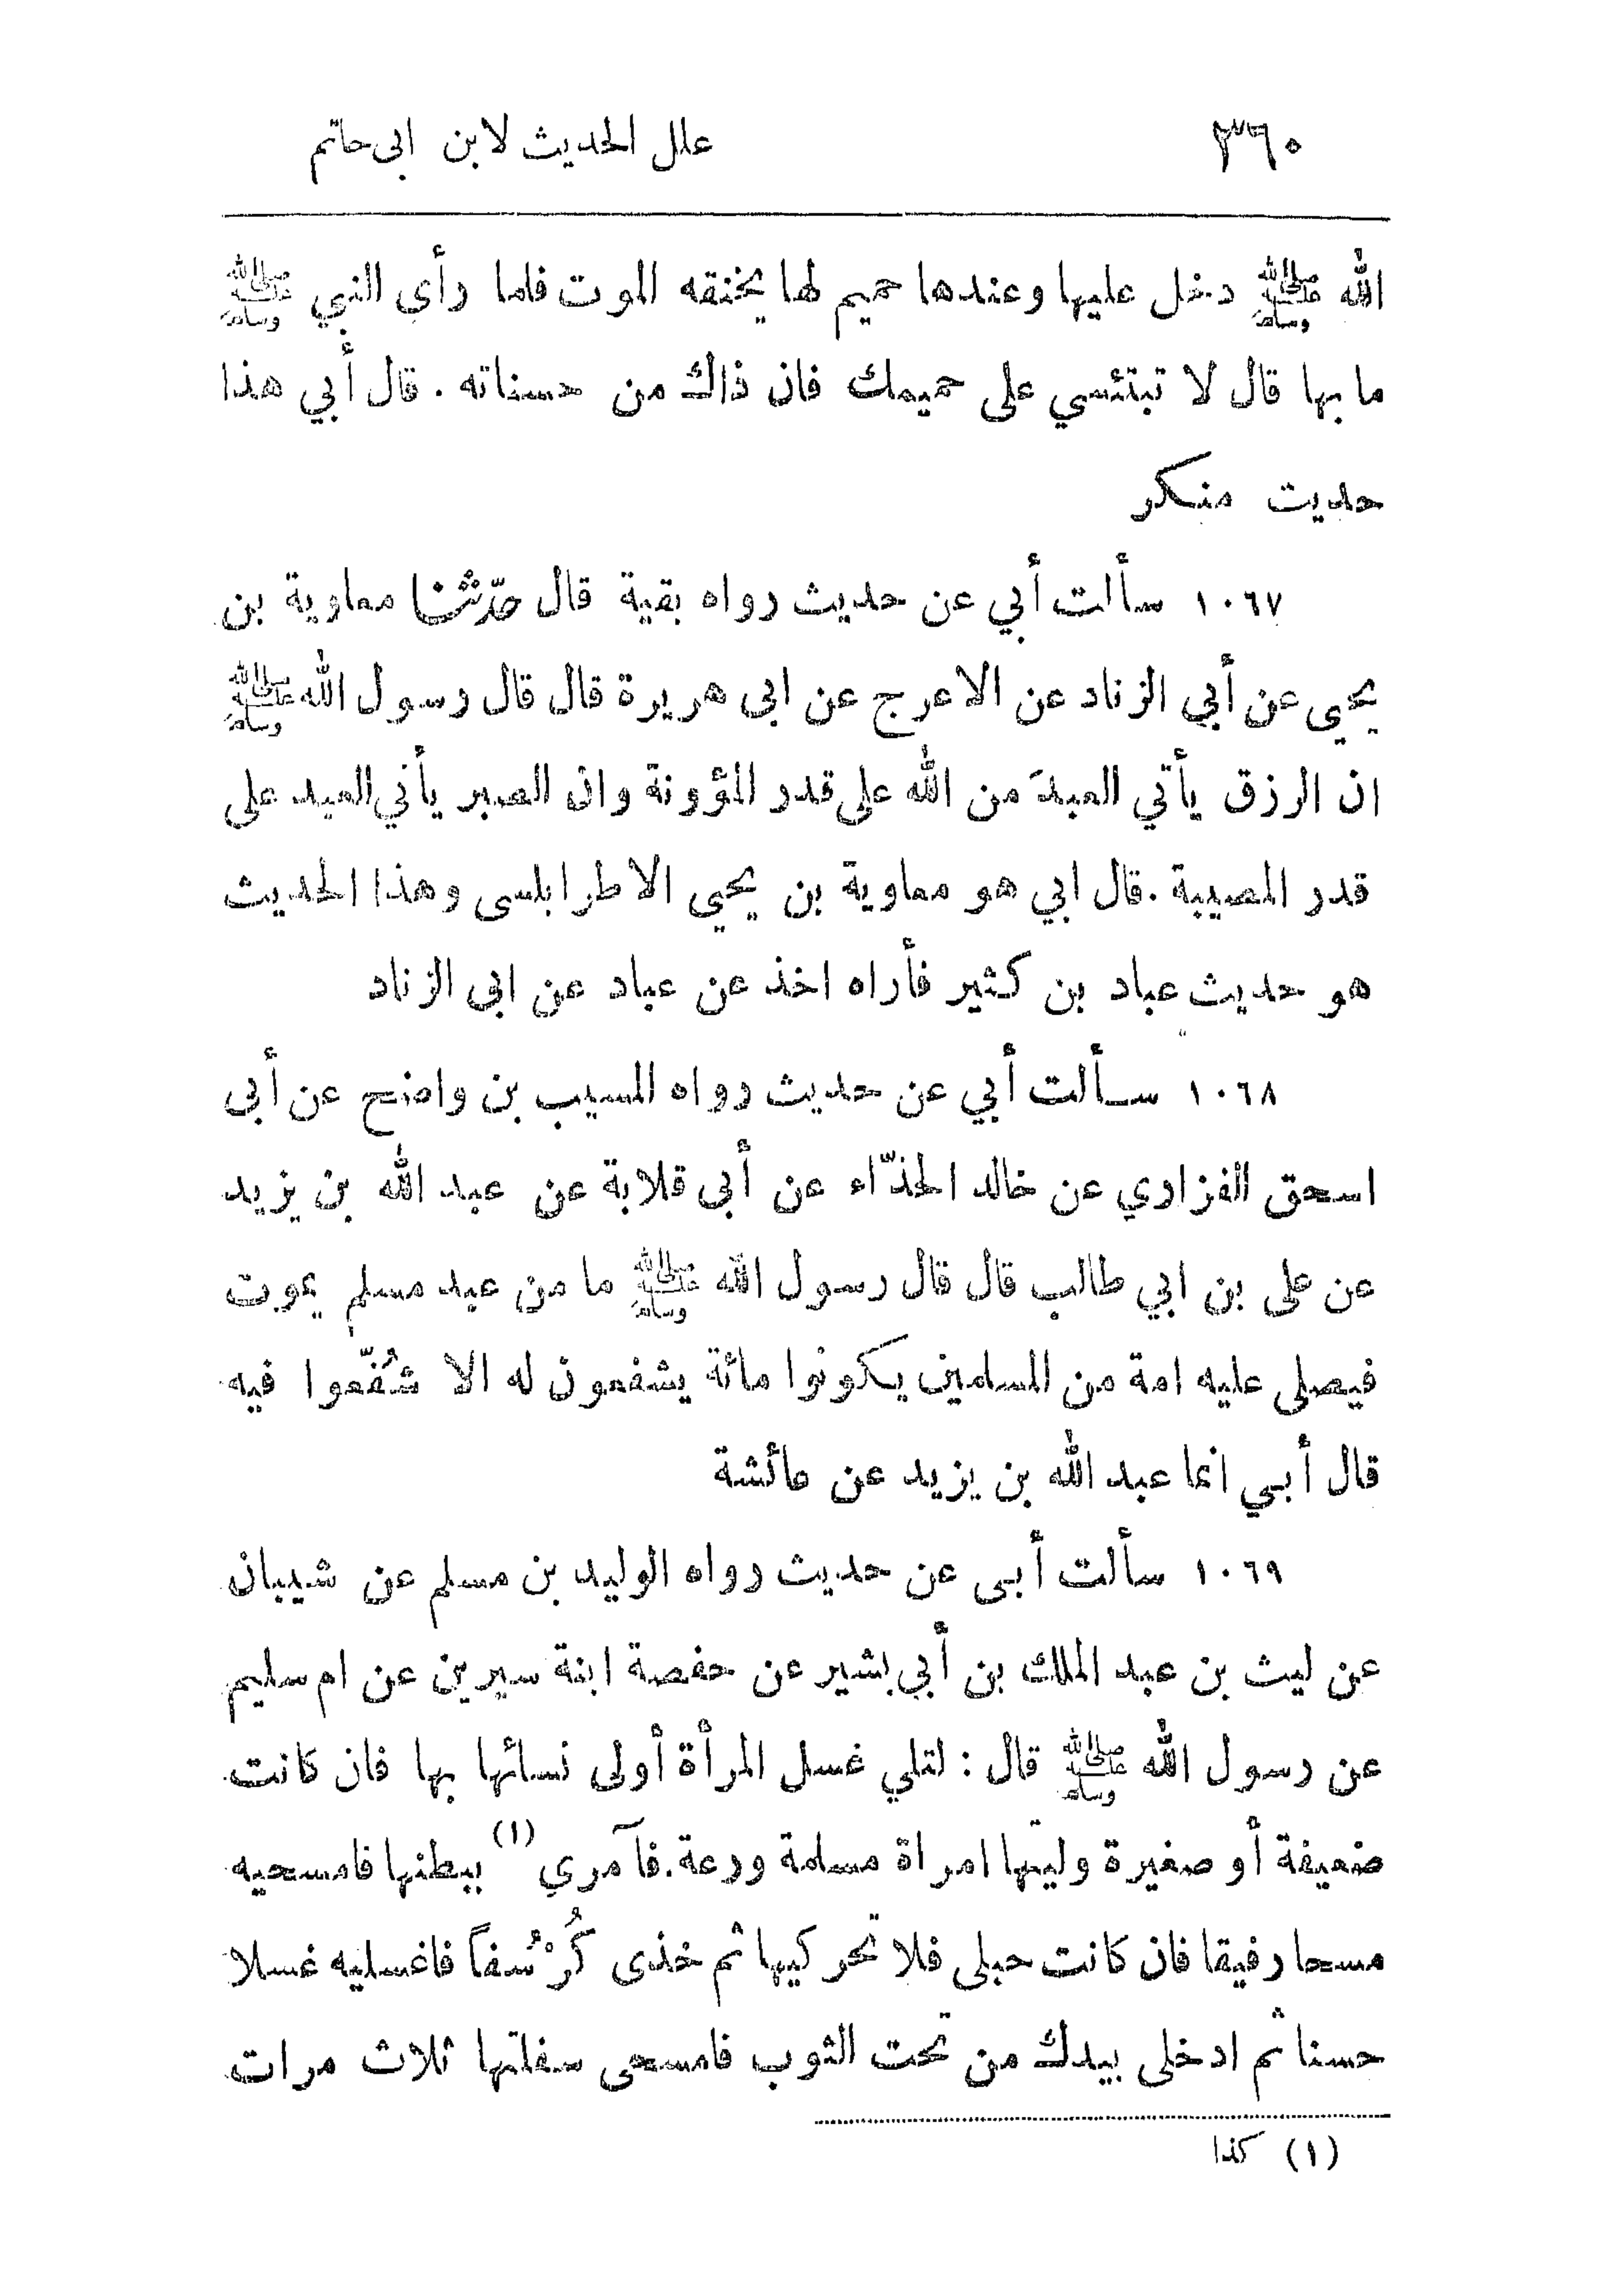 ٣٦٠ علل الحديث لابن ابى حاتم
الله ﷺ دخل عليها وعندها حميم لها يخنقه الموت فلما رأى النبي ﷺ
ما بها قال لا تبتئسي على حميمك فان ذاك من حسناته . قال أبي هذا
حديث منكر
١٠٦٧ سألت أبي عن حديث رواه بقية قال حدّثنا معاوية بن
يحيى عن أبي الزناد عن الاعرج عن ابى هريرة قال قال رسول الله ﷺ
ان الرزق يأتي العبدَ من الله على قدر المؤونة وان الصبر يأتي العبد على
قدر المصيبة . قال ابي هو معاوية بن يحيى الاطرابلسى وهذا الحديث
هو حديث عباد بن كثير فأراه اخذ عن عباد عن ابى الزناد
١٠٦٨ سألت أبي عن حديث رواه المسيب بن واضح عن أبى
اسحق الفزاري عن خالد الحذّاء عن أبى قلابة عن عبد الله بن يزيد
عن على بن ابي طالب قال قال رسول الله ﷺ ما من عبد مسلم يموت
فيصلى عليه امة من المسلمين يكونوا مائة يشفعون له الا شُفّعوا فيه
قال أبي انما عبد الله بن يزيد عن عائشة
١٠٦٩ سألت أبى عن حديث رواه الوليد بن مسلم عن شيبان
عن ليث بن عبد الملك بن أبي بشير عن حفصة ابنة سيرين عن ام سليم
عن رسول الله ﷺ قال : لتلي غسل المرأة أولى نسائها بها فان كانت
ضعيفة أو صغيرة وليتها امراة مسلمة ورعة . فآمري (١) ببطنها فامسحيه
مسحا رفيقا فان كانت حبلى فلا تحركيها ثم خذى كُرْسُفاً فاغسليه غسلا
حسنا ثم ادخلى بيدك من تحت الثوب فامسحى سفلتها ثلاث مرات
(١) كذا